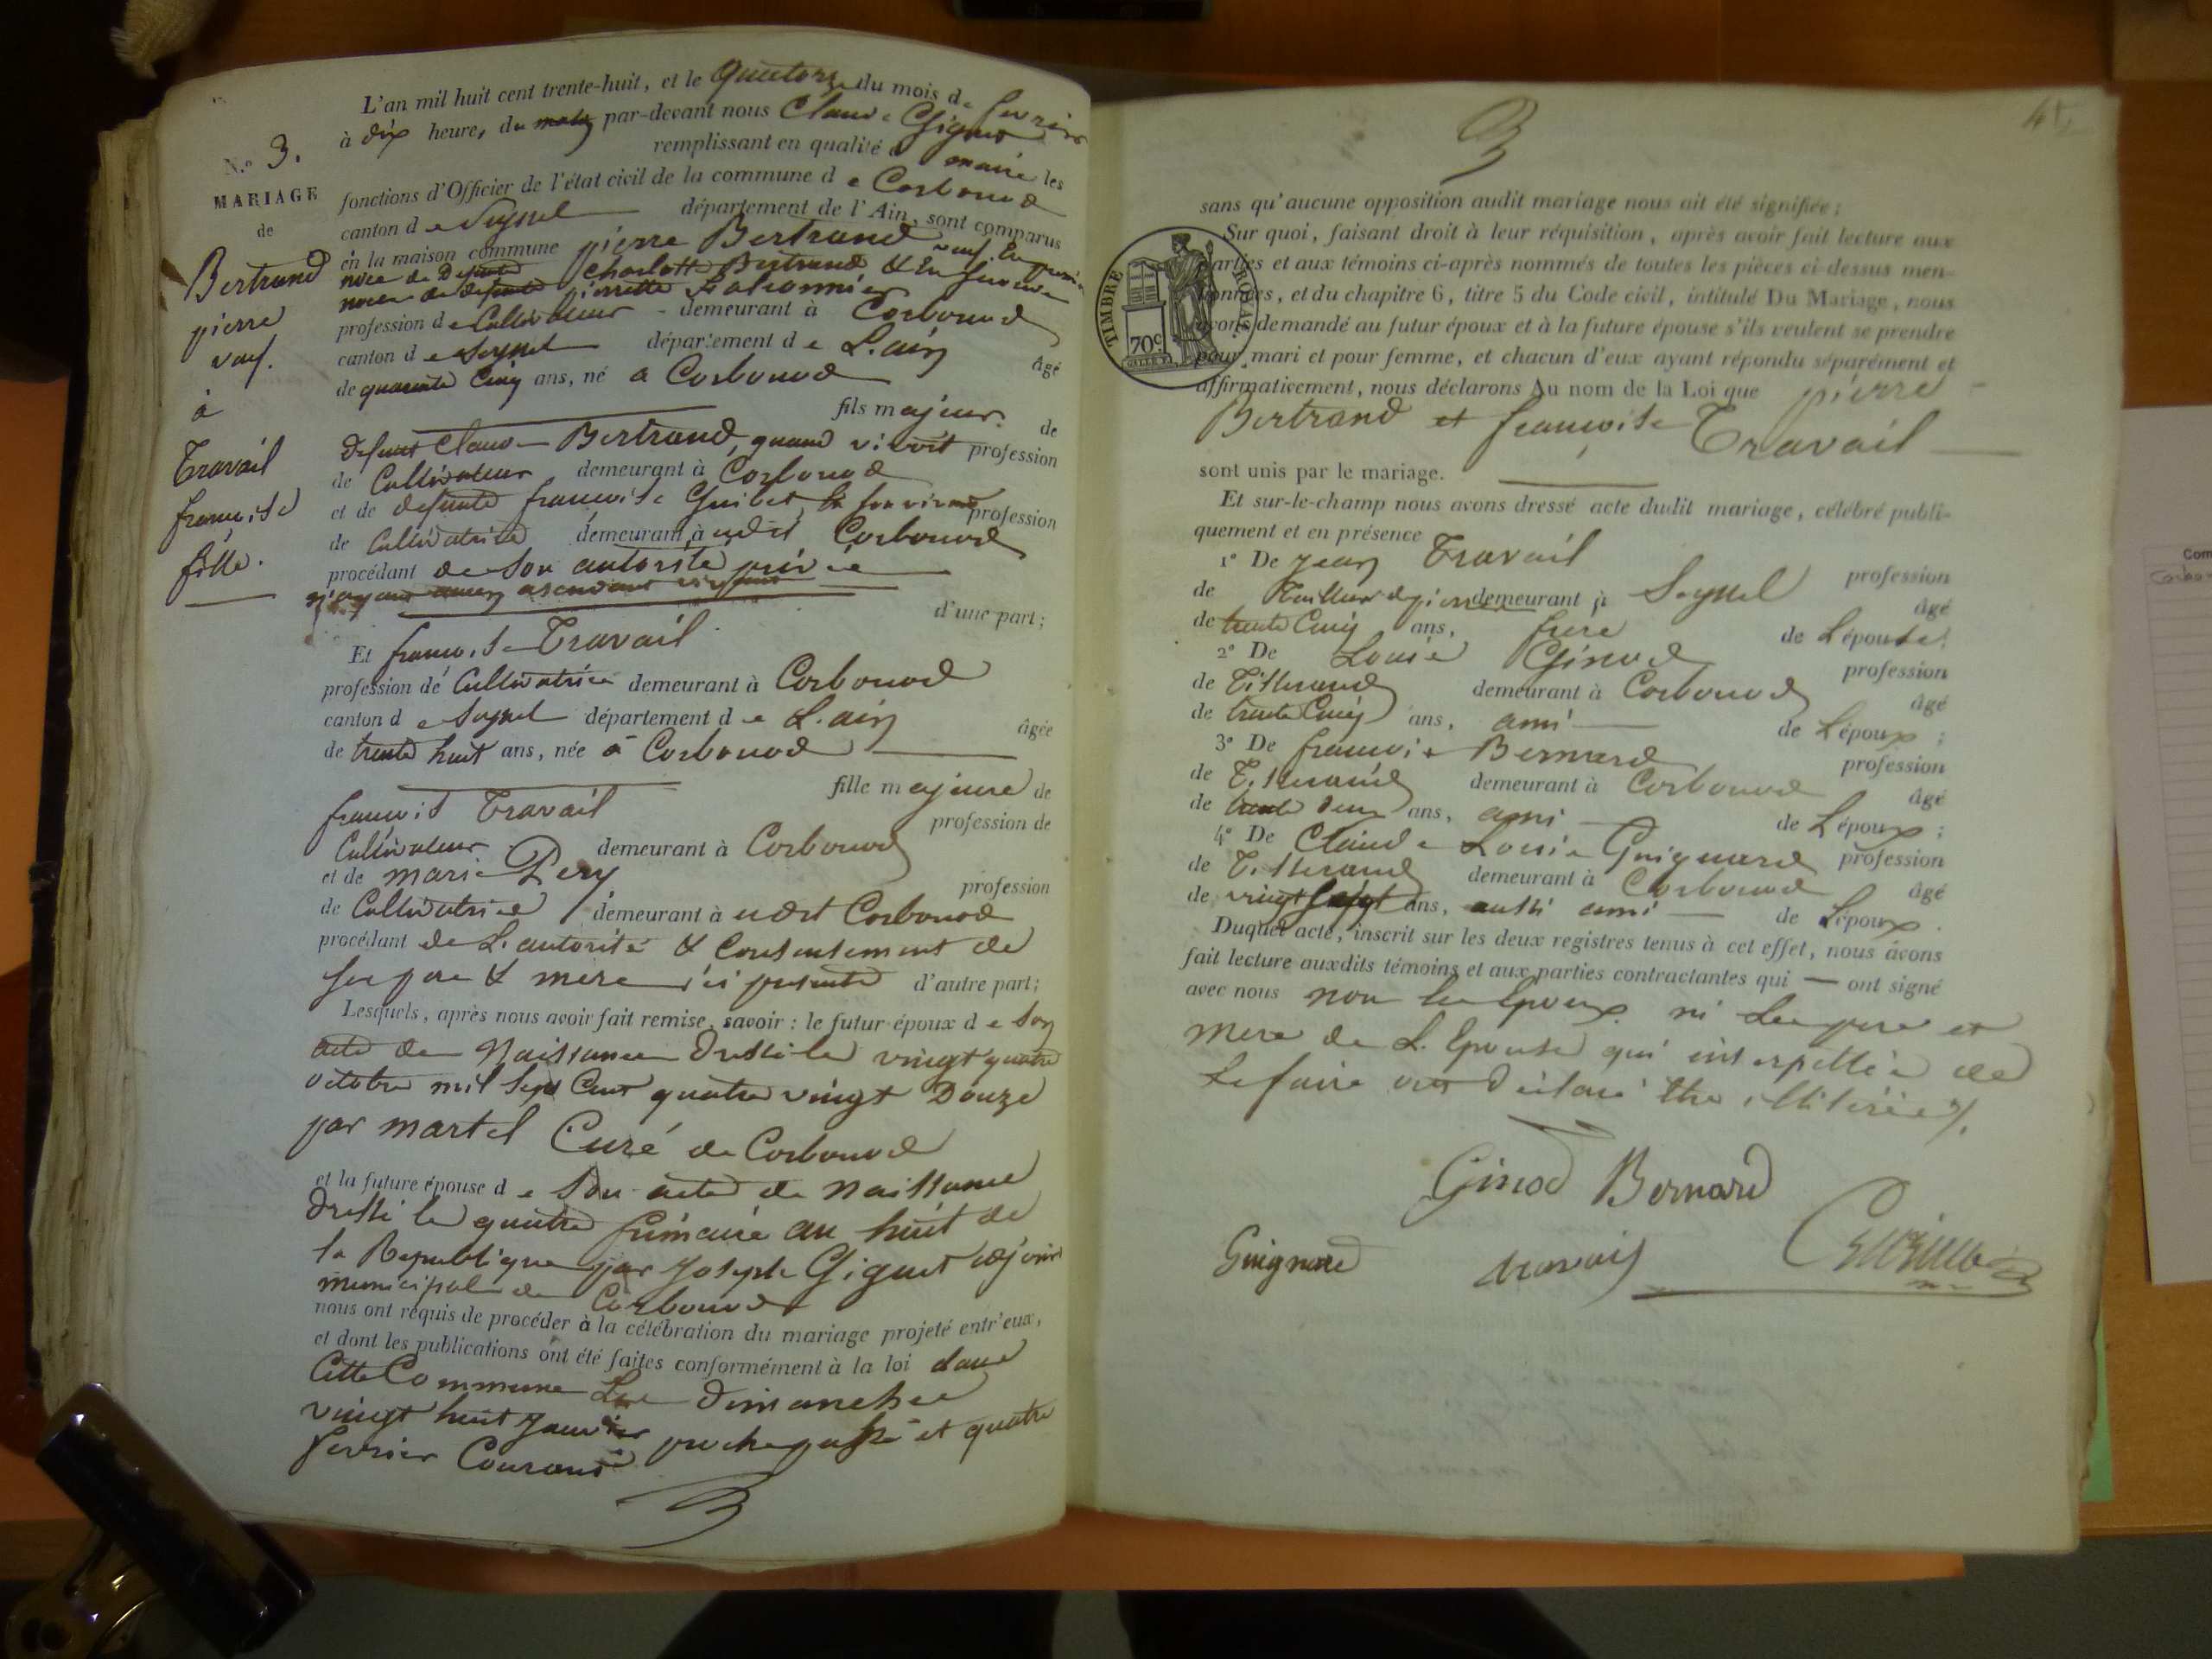 L'an mil huit cent trente-huit, et le quatorze du mois de fevrier
à dix heures du matin par-devant nous Claude Giguet
remplissant en qualité de maire les
N.o 3.
MARIAGE
de
Bertrand
pierre
veuf.
à
Travail
françoise
fille.
fonctions d'Officier de l'état civil de la commune de Corbonod
canton de Seyssel département de l'Ain, sont comparus
en la maison commune pierre Bertrand veuf en premiere
noce de defunte Charlotte Bertrand & en seconde
noces de defunte pierrette
profession de Cultivateur demeurant à Corbonod
canton de Seyssel département de L'ain âgé
de quarante Cinq ans, né a Corbonod
fils majeur de
defunt Claude Bertrand, quand vivoit profession
de Cultivateur demeurant à Corbonod
et de defunte françoise Guibet profession
de Cultivatrice demeurant à udit Corbonod
procédant de son autorité privée
n'ayant aucun ascendant vivant
d'une part;
Et françoise Travail
profession de Cultivatrice demeurant à Corbonod
canton de Seyssel département de L'ain âgée
de trente huit ans, née à Corbonod
fille majeure de
françois Travail profession de
Cultivateur demeurant à Corbonod
et de marie Pery profession
de Cultivatrice demeurant à udit Corbonod
procédant de L'autorité & Consentement de
ses pere & mere ici presents d'autre part;
Lesquels, après nous avoir fait remise, savoir : le futur époux de son
acte de Naissance dressé le vingt quatre
octobre mil sept Cent quatre vingt Douze
par martel Curé de Corbonod
et la future épouse de son acte de naissance
dressé le quatre frimaire an huit de
la Republique par Joseph Giguet adjoint
municipal de Corbonod
nous ont requis de procéder à la célébration du mariage projeté entr'eux,
et dont les publications ont été faites conformément à la loi dans
Cette Commune Les Dimanches
vingt huit Janvier proche passé et quatre
fevrier Courant
4
sans qu'aucune opposition audit mariage nous ait été signifiée;
Sur quoi, faisant droit à leur réquisition, après avoir fait lecture aux
parties et aux témoins ci-après nommés de toutes les pièces ci-dessus men-
tionnées, et du chapitre 6, titre 5 du Code civil, intitulé Du Mariage, nous
avons demandé au futur époux et à la future épouse s'ils veulent se prendre
pour mari et pour femme, et chacun d'eux ayant répondu séparément et
affirmativement, nous déclarons Au nom de la Loi que pierre
Bertrand et françoise Travail
TIMBRE ROYAL
70c
sont unis par le mariage.
Et sur-le-champ nous avons dressé acte dudit mariage, célébré publi-
quement et en présence
1° De Jean Travail profession
de Tailleur de pierre demeurant à Seyssel âgé
de trente Cinq ans, frere de L'épouse;
2° De Louis Ginod profession
de Tisserand demeurant à Corbonod âgé
de trente Cinq ans, ami de L'époux;
3° De françois Bernard profession
de Tisserand demeurant à Corbonod âgé
de trente deux ans, ami de L'époux;
4° De Claude Louis Guignard profession
de Tisserand demeurant à Corbonod âgé
de vingt sept ans, aussi ami de L'époux.
Duquel acte, inscrit sur les deux registres tenus à cet effet, nous avons
fait lecture auxdits témoins et aux parties contractantes qui — ont signé
avec nous non les époux ni les pere et
mere de L'épouse qui interpellés de
le faire ont déclaré être illitérés.
Ginod Bernard
Guignard travail
Com